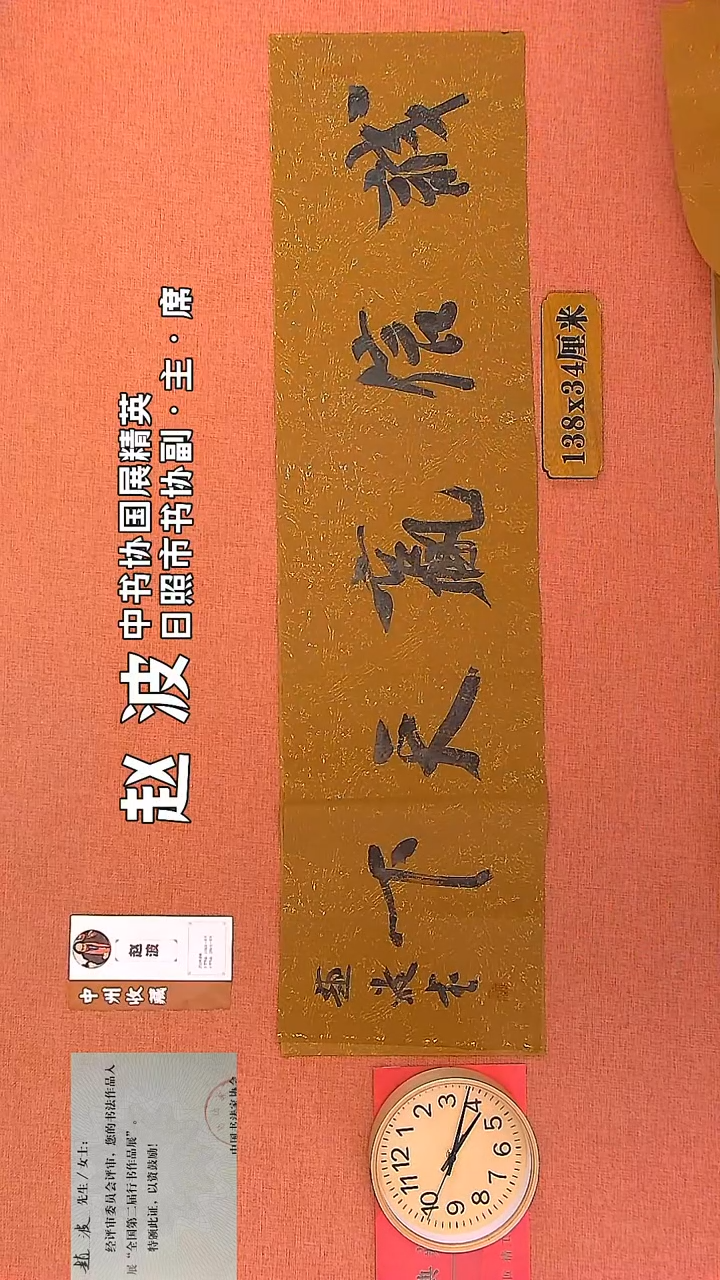 赵波
中书协国展精英
日照市书协副·主·席
誠信贏天下
趙波書
138x34厘米
中州收藏
赵波
趙波 先生/女士:
经评审委员会评审,您的书法作品入
展“全国第二届行书作品展”。
特颁此证,以资鼓励!
中国书法家协会
12
1
2
3
4
5
6
7
8
9
10
11